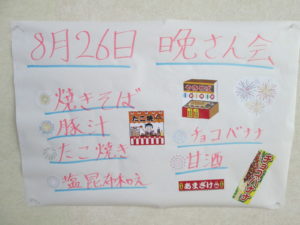 8月26日 晩さん会
焼きそば
豚汁
たこ焼き
塩昆布和え
たこ焼
チョコバナナ
甘酒
あまざけ